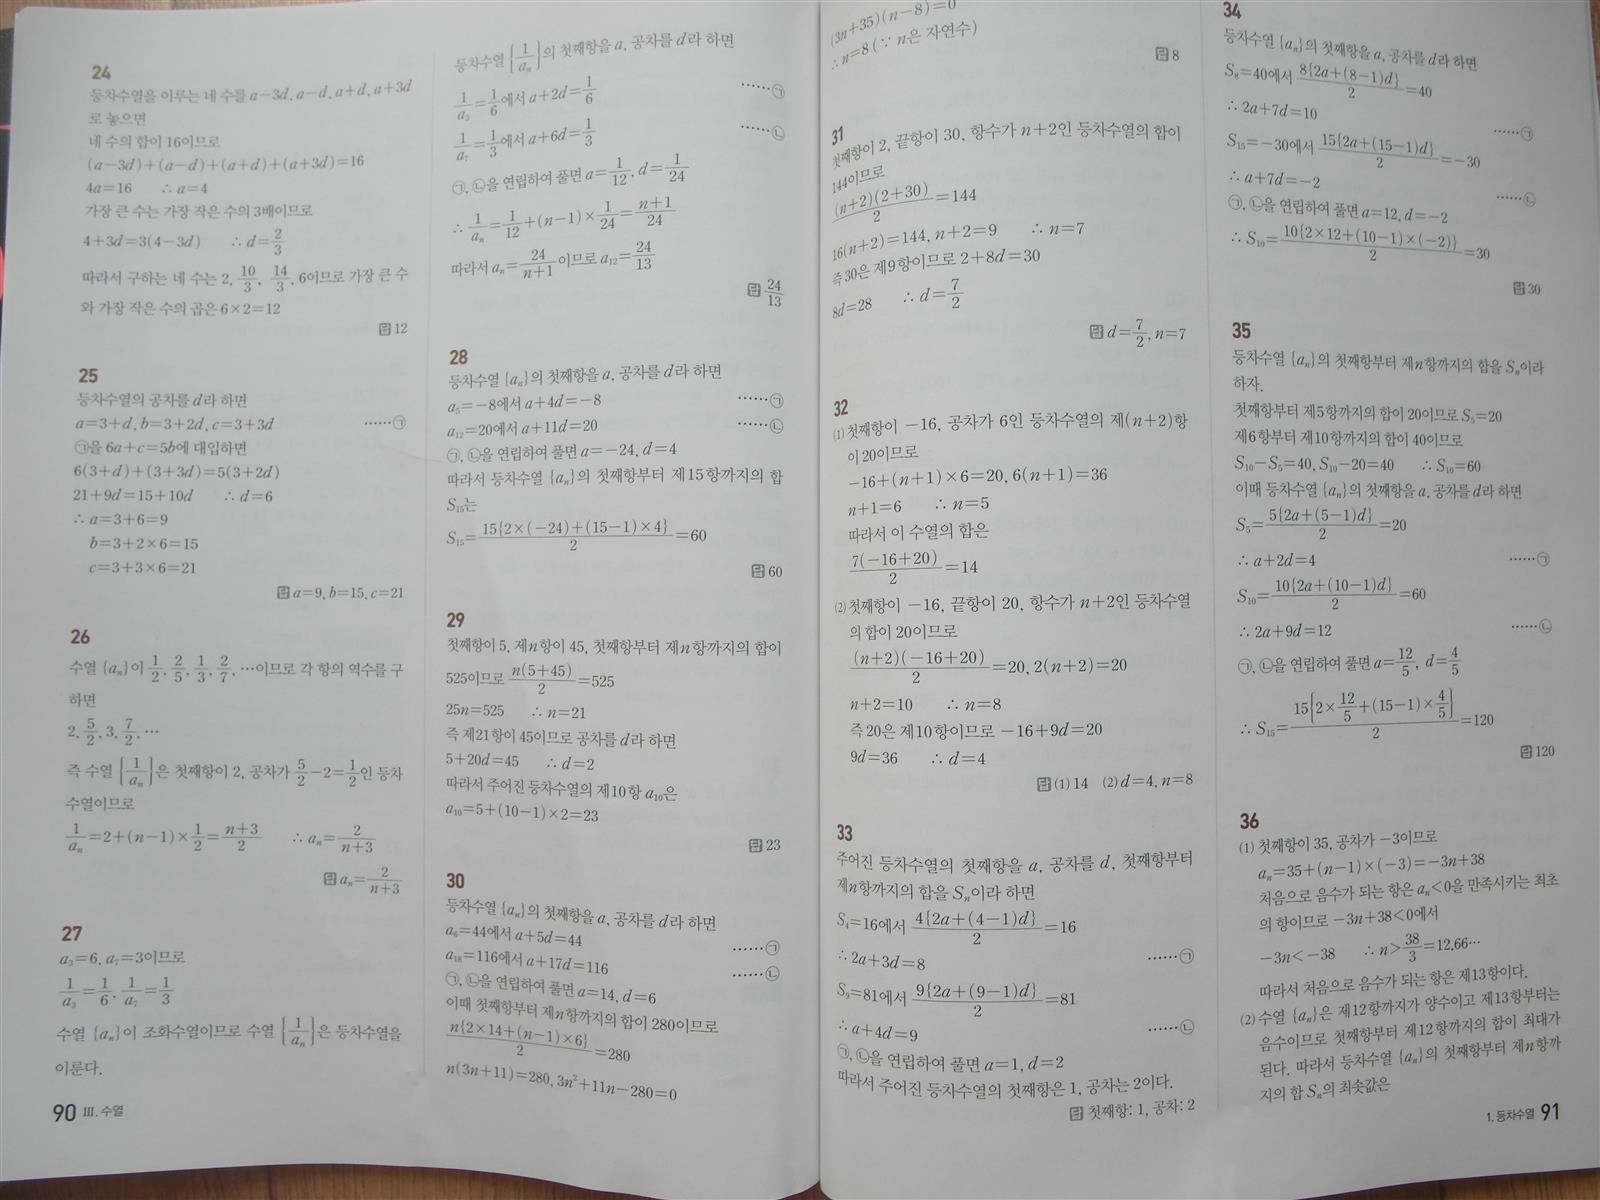 24
등차수열을 이루는 네 수를 a-3d, a-d, a+d, a+3d
로 놓으면
네 수의 합이 16이므로
(a-3d)+(a-d)+(a+d)+(a+3d)=16
4a=16 ∴ a=4
가장 큰 수는 가장 작은 수의 3배이므로
4+3d=3(4-3d) ∴ d=2/3
따라서 구하는 네 수는 2, 10/3, 14/3, 6이므로 가장 큰 수
와 가장 작은 수의 곱은 6×2=12
답 12
25
등차수열의 공차를 d라 하면
a=3+d, b=3+2d, c=3+3d ……㉠
㉠을 6a+c=5b에 대입하면
6(3+d)+(3+3d)=5(3+2d)
21+9d=15+10d ∴ d=6
∴ a=3+6=9
b=3+2×6=15
c=3+3×6=21
답 a=9, b=15, c=21
26
수열 {aₙ}이 1/2, 2/5, 1/3, 2/7, …이므로 각 항의 역수를 구
하면
2, 5/2, 3, 7/2, …
즉 수열 {1/aₙ}은 첫째항이 2, 공차가 5/2-2=1/2인 등차
수열이므로
1/aₙ=2+(n-1)×1/2=(n+3)/2 ∴ aₙ=2/(n+3)
답 aₙ=2/(n+3)
27
a₃=6, a₇=3이므로
1/a₃=1/6, 1/a₇=1/3
수열 {aₙ}이 조화수열이므로 수열 {1/aₙ}은 등차수열을
이룬다.
90 Ⅲ. 수열
등차수열 {1/aₙ}의 첫째항을 a, 공차를 d라 하면
1/a₃=1/6에서 a+2d=1/6 ……㉠
1/a₇=1/3에서 a+6d=1/3 ……㉡
㉠, ㉡을 연립하여 풀면 a=1/12, d=1/24
∴ 1/aₙ=1/12+(n-1)×1/24=(n+1)/24
따라서 aₙ=24/(n+1)이므로 a₁₂=24/13
답 24/13
28
등차수열 {aₙ}의 첫째항을 a, 공차를 d라 하면
a₅=-8에서 a+4d=-8 ……㉠
a₁₂=20에서 a+11d=20 ……㉡
㉠, ㉡을 연립하여 풀면 a=-24, d=4
따라서 등차수열 {aₙ}의 첫째항부터 제15항까지의 합
S₁₅는
S₁₅=15{2×(-24)+(15-1)×4}/2=60
답 60
29
첫째항이 5, 제n항이 45, 첫째항부터 제n항까지의 합이
525이므로 n(5+45)/2=525
25n=525 ∴ n=21
즉 제21항이 45이므로 공차를 d라 하면
5+20d=45 ∴ d=2
따라서 주어진 등차수열의 제10항 a₁₀은
a₁₀=5+(10-1)×2=23
답 23
30
등차수열 {aₙ}의 첫째항을 a, 공차를 d라 하면
a₆=44에서 a+5d=44 ……㉠
a₁₈=116에서 a+17d=116 ……㉡
㉠, ㉡을 연립하여 풀면 a=14, d=6
이때 첫째항부터 제n항까지의 합이 280이므로
n{2×14+(n-1)×6}/2=280
n(3n+11)=280, 3n²+11n-280=0
(3n+35)(n-8)=0
∴ n=8 (∵ n은 자연수)
답 8
31
첫째항이 2, 끝항이 30, 항수가 n+2인 등차수열의 합이
144이므로
(n+2)(2+30)/2=144
16(n+2)=144, n+2=9 ∴ n=7
즉 30은 제9항이므로 2+8d=30
8d=28 ∴ d=7/2
답 d=7/2, n=7
32
⑴ 첫째항이 -16, 공차가 6인 등차수열의 제(n+2)항
이 20이므로
-16+(n+1)×6=20, 6(n+1)=36
n+1=6 ∴ n=5
따라서 이 수열의 합은
7(-16+20)/2=14
⑵ 첫째항이 -16, 끝항이 20, 항수가 n+2인 등차수열
의 합이 20이므로
(n+2)(-16+20)/2=20, 2(n+2)=20
n+2=10 ∴ n=8
즉 20은 제10항이므로 -16+9d=20
9d=36 ∴ d=4
답 ⑴ 14 ⑵ d=4, n=8
33
주어진 등차수열의 첫째항을 a, 공차를 d, 첫째항부터
제n항까지의 합을 Sₙ이라 하면
S₄=16에서 4{2a+(4-1)d}/2=16
∴ 2a+3d=8 ……㉠
S₉=81에서 9{2a+(9-1)d}/2=81
∴ a+4d=9 ……㉡
㉠, ㉡을 연립하여 풀면 a=1, d=2
따라서 주어진 등차수열의 첫째항은 1, 공차는 2이다.
답 첫째항: 1, 공차: 2
34
등차수열 {aₙ}의 첫째항을 a, 공차를 d라 하면
S₈=40에서 8{2a+(8-1)d}/2=40
∴ 2a+7d=10 ……㉠
S₁₅=-30에서 15{2a+(15-1)d}/2=-30
∴ a+7d=-2 ……㉡
㉠, ㉡을 연립하여 풀면 a=12, d=-2
∴ S₁₀=10{2×12+(10-1)×(-2)}/2=30
답 30
35
등차수열 {aₙ}의 첫째항부터 제n항까지의 합을 Sₙ이라
하자.
첫째항부터 제5항까지의 합이 20이므로 S₅=20
제6항부터 제10항까지의 합이 40이므로
S₁₀-S₅=40, S₁₀-20=40 ∴ S₁₀=60
이때 등차수열 {aₙ}의 첫째항을 a, 공차를 d라 하면
S₅=5{2a+(5-1)d}/2=20
∴ a+2d=4 ……㉠
S₁₀=10{2a+(10-1)d}/2=60
∴ 2a+9d=12 ……㉡
㉠, ㉡을 연립하여 풀면 a=12/5, d=4/5
∴ S₁₅=15{2×12/5+(15-1)×4/5}/2=120
답 120
36
⑴ 첫째항이 35, 공차가 -3이므로
aₙ=35+(n-1)×(-3)=-3n+38
처음으로 음수가 되는 항은 aₙ<0을 만족시키는 최초
의 항이므로 -3n+38<0에서
-3n<-38 ∴ n>38/3=12.66…
따라서 처음으로 음수가 되는 항은 제13항이다.
⑵ 수열 {aₙ}은 제12항까지가 양수이고 제13항부터는
음수이므로 첫째항부터 제12항까지의 합이 최대가
된다. 따라서 등차수열 {aₙ}의 첫째항부터 제n항까
지의 합 Sₙ의 최솟값은
1. 등차수열 91